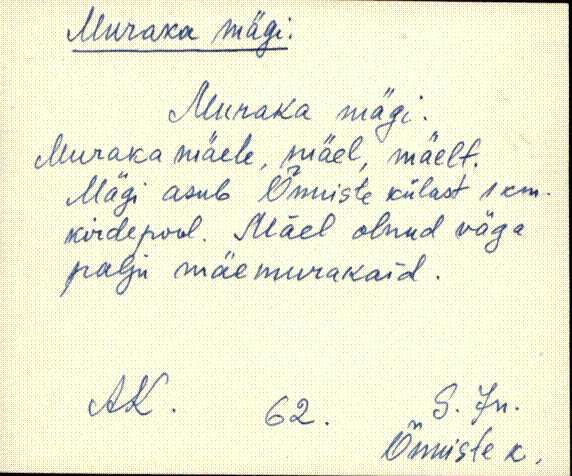 Muraka mägi.
Muraka mägi.
Muraka mäele, mäel, mäelt.
Mägi asub Õnniste külast 1 km.
kirdepool. Mäel olnud väga
palju mäemurakaid.
AK. 62. S. Jn.
Õnniste k.